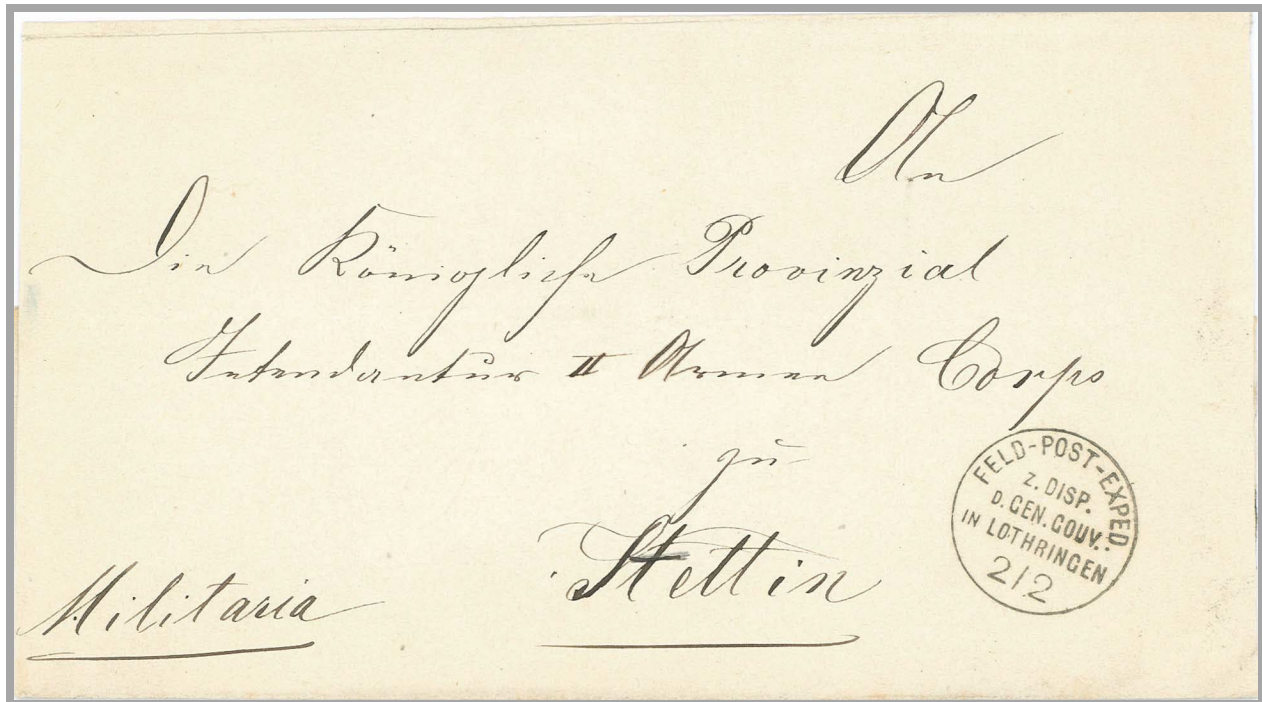 An
Die Königliche Provinzial
Intendantur II Armee Corps
zu
Stettin
Militaria
FELD-POST-EXPED
Z. DISP.
D. GEN. GOUV.
IN LOTHRINGEN
2/2